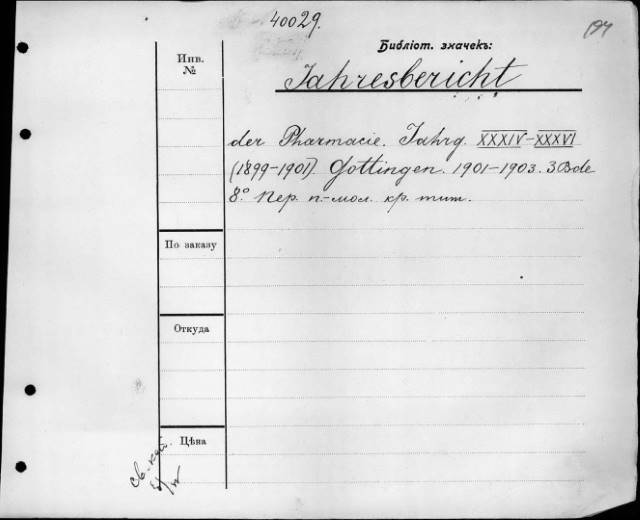 40029.
194
Библіот. значекъ:
Инв.
№
Jahresbericht
der Pharmacie. Jahrg. XXXIV–XXXVI
(1899–1901) Gottingen. 1901–1903. 3 Bde
8.° Пер. п.-мол. кр. тит.
По заказу
Откуда
Цѣна